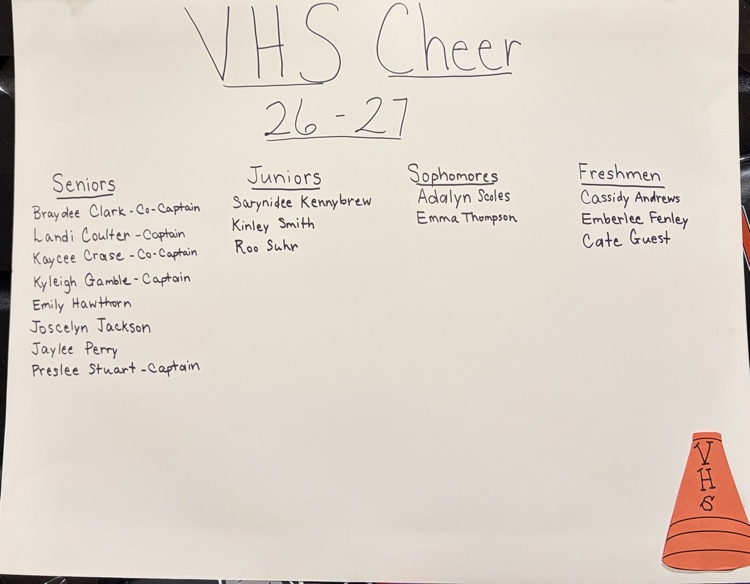 VHS Cheer
26-27
Seniors
Braydee Clark-Co-Captain
Landi Coulter-Captain
Kaycee Crase-Co-Captain
Kyleigh Gamble-Captain
Emily Hawthorn
Joscelyn Jackson
Jaylee Perry
Preslee Stuart-Captain
Juniors
Sarynidee Kennybrew
Kinley Smith
Roo Suhr
Sophomores
Adalyn Scoles
Emma Thompson
Freshmen
Cassidy Andrews
Emberlee Fenley
Cate Guest
VHS